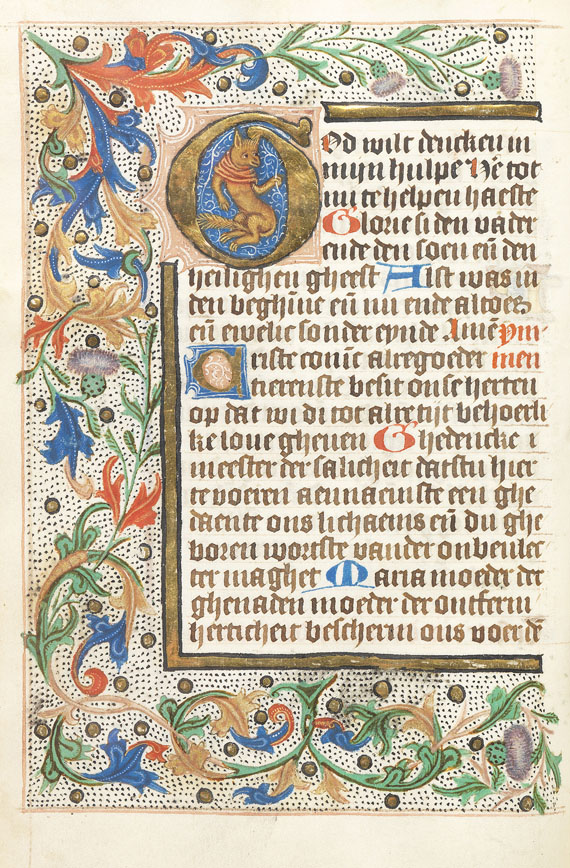 God wilt dencken in
mijn hulpe He tot
mi te helpen haeste
Glorie si den vader
ende den soen eñ den
heilighen gheest Alst was in
den beghīne eñ nu ende altoes
eñ ewelic sonder eynde Amē ym-
Criste coninc alregoeder men
tierenste besit onse herten
op dat wi di tot alre tijt behoerli
ke loue gheuen Ghedencke i
meester der salicheit datstu hier
te voeren aennaemste een ghe
daente ons lichaems eñ du ghe
boren wortste vander onbeulec
ter maghet Maria moeder der
ghenaden moeder der ontferm
herticheit bescherm ons voer dē